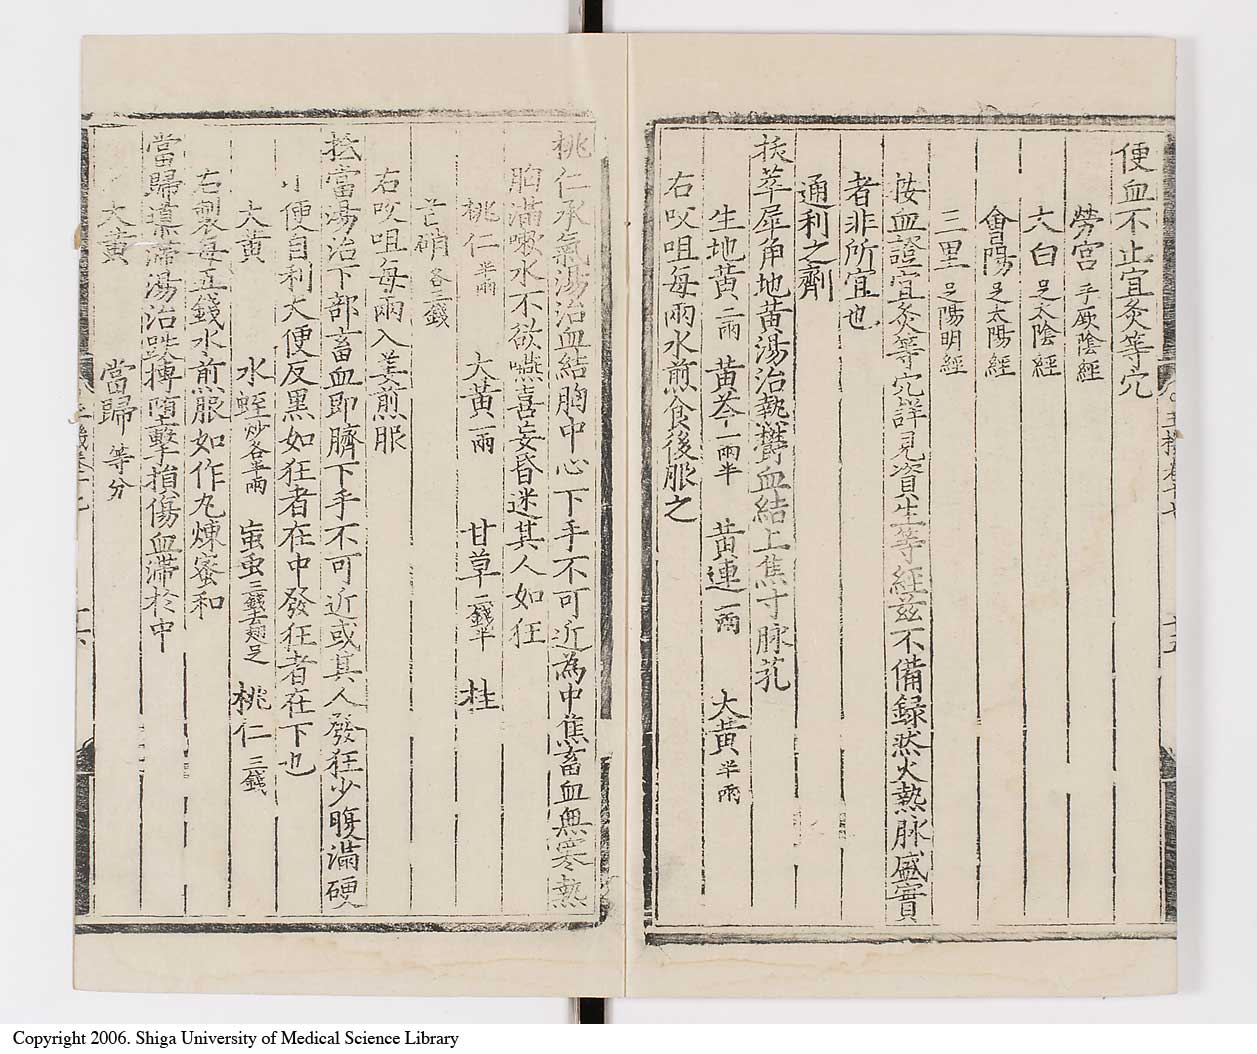 便血不止宜灸等穴
勞宮 手厥陰經
六白 足太陰經
會陽 足太陽經
三里 足陽明經
按血證宜灸等穴詳見資生等經茲不備録然火熱脉盛實
者非所宜也
通利之劑
拔萃犀角地黄湯治熱欝血結上焦寸脉芤
生地黄二兩 黄芩一兩半 黄連一兩 大黄半兩
右㕮咀每兩水煎食後服之
桃仁承氣湯治血結胸中心下手不可近為中焦畜血無寒熱
胸滿嗽水不欲嚥喜妄昏迷其人如狂
桃仁半兩 大黄一兩 甘草二錢半 桂
芒硝各三錢
右㕮咀每兩入姜煎服
抵當湯治下部畜血即臍下手不可近或其人發狂少腹滿硬
小便自利大便反黑如狂者在中發狂者在下也
大黄 水蛭炒各半兩 䖟虫三錢去翅足 桃仁三錢
右製每五錢水煎服如作丸煉蜜和
當歸導滯湯治跌撲墮擊損傷血滯於中
大黄 當歸等分
Copyright 2006. Shiga University of Medical Science Library